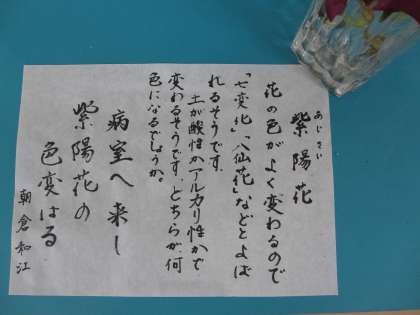 あじさい
紫陽花
花の色がよく変わるので
「七変化」「八仙花」などとよば
れるそうです。
土が酸性かアルカリ性かで
変わるそうです。どちらが、何
色になるでしょうか。
病室へ来し
紫陽花の
色変はる
朝倉和江